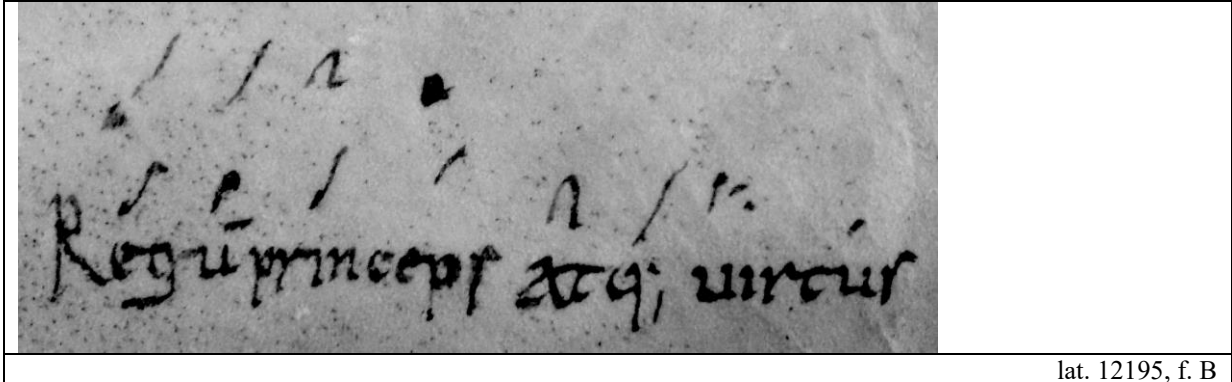 Regū princeps Atq; uirtus
lat. 12195, f. B